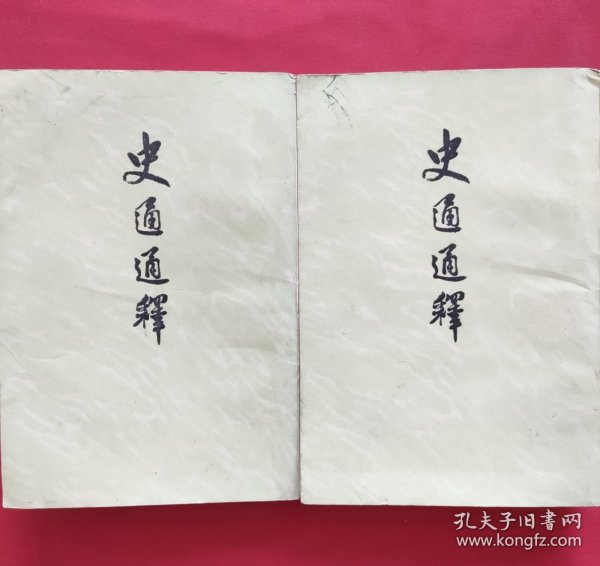 史通通釋
史通通釋
孔夫子旧書网
www.kongfz.com